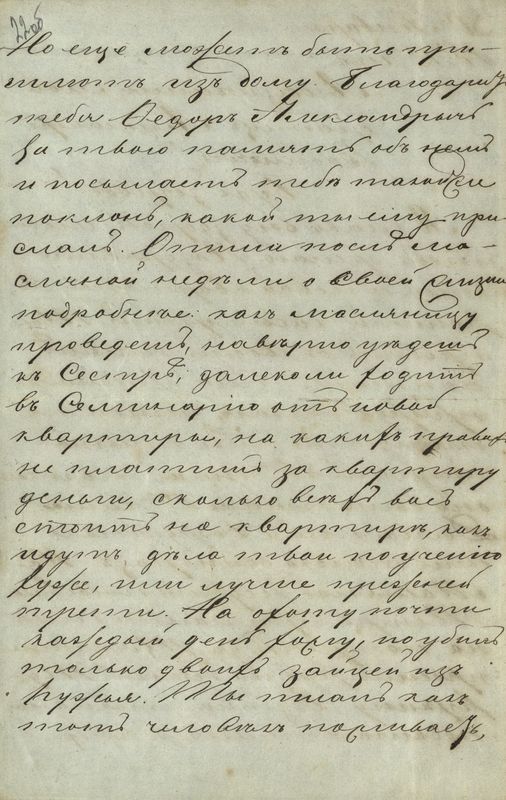 22об
Но еще можетъ быть при-
шлютъ изъ дому. Благодаритъ
тебя Ѳедоръ Александрычь
за твою память объ немъ
и посылаетъ тебѣ такой же
поклонъ, какой ты ему при-
слалъ. Опиши послѣ ма-
сличной недѣли о своей жизни
подробнѣе: какъ маслянницу
проведешь, навѣрно уѣдешь
къ Сестрѣ, далеколи ходить
въ Семинарію отъ новой
квартиры, на какихъ правахъ
не платишь за квартиру
деньги, сколько всѣхъ васъ
стоитъ на квартирѣ, какъ
идутъ дѣла твои по ученію
хуже, или лучше прежней
трети. На охоту почти
каждый день хожу, но убилъ
только двоихъ зайцей изъ
ружья. Ты писалъ какъ
тотъ человѣкъ поживаетъ,